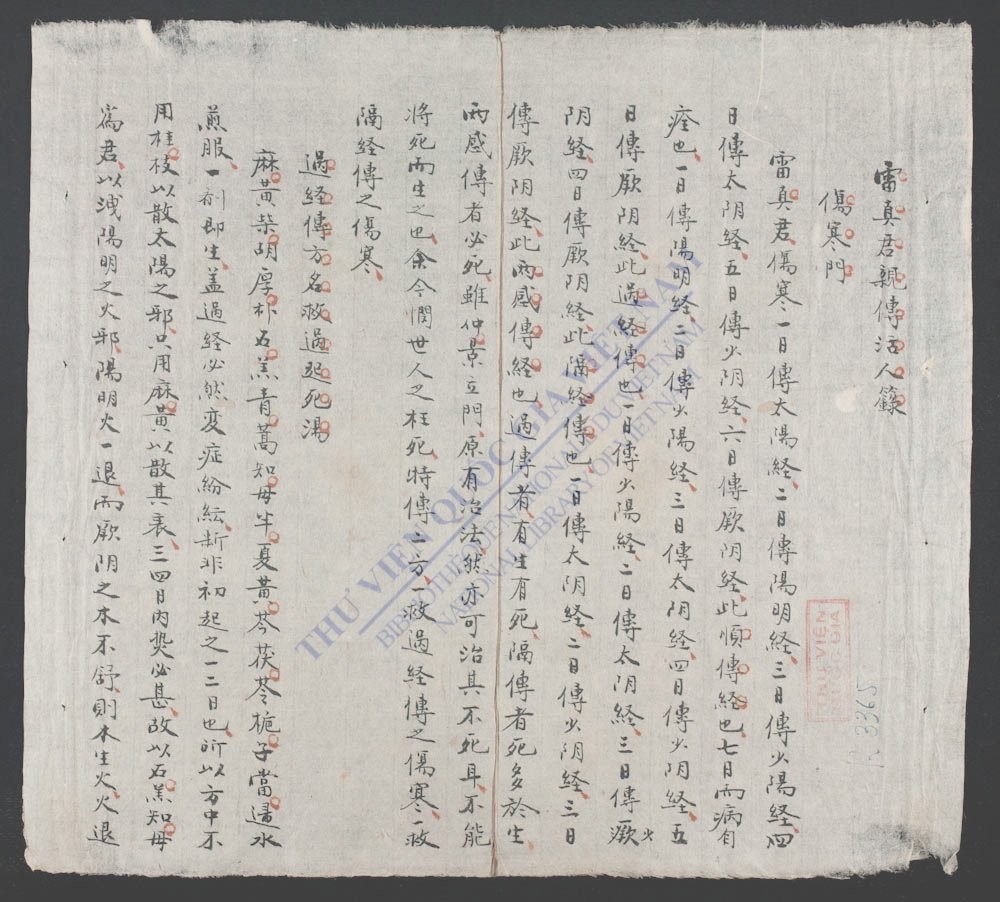 雷真君親傳活人籙
傷寒門
雷真君傷寒一日傳太陽経二日傳陽明経三日傳少陽経四
日傳太阴経五日傳少阴経六日傳厥阴経此順傳経也七日而病自
痊也一日傳陽明経二日傳少陽経三日傳太阴経四日傳少阴経五
日傳厥阴経此過経傳也一日傳少陽経二日傳太阴経三日傳厥
少
阴経四日傳厥阴経此隔経傳也一日傳太阴経二日傳少阴経三日
傳厥阴経此两感傳経也過傳者有生有死隔傳者死多於生
两感傳者必死雖仲景立門原有治法然亦可治其不死耳不能
将死而生之也余今憫世人之枉死特傳二方一救過経傳之傷寒一救
隔経傳之傷寒
過経傳方名救過起死湯
麻黄柴胡厚朴石羔青蒿知毋半夏黄芩茯苓梔子當歸水
煎服一剤即生盖過経必然変症紛紜断非初起之一二日也所以方中不
用桂枝以散太陽之邪只用麻黄以散其表三四日内熱必甚故以石羔知毋
為君以洩陽明之火邪陽明火一退而厥阴之木不舒則木生火火退
THƯ VIỆN QUỐC GIA VIỆT NAM
BIBLIOTHÈQUE NATIONALE DU VIETNAM
NATIONAL LIBRARY OF VIETNAM
THƯ VIỆN
QUỐC GIA
R. 3365